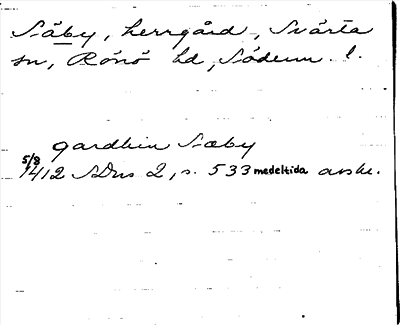 Säby, herrgård, Svärta
sn, Rönö hd, Söderm. l.
gardhin Sæby
5/8
1412 SDns 2, s. 533 medeltida avskr.